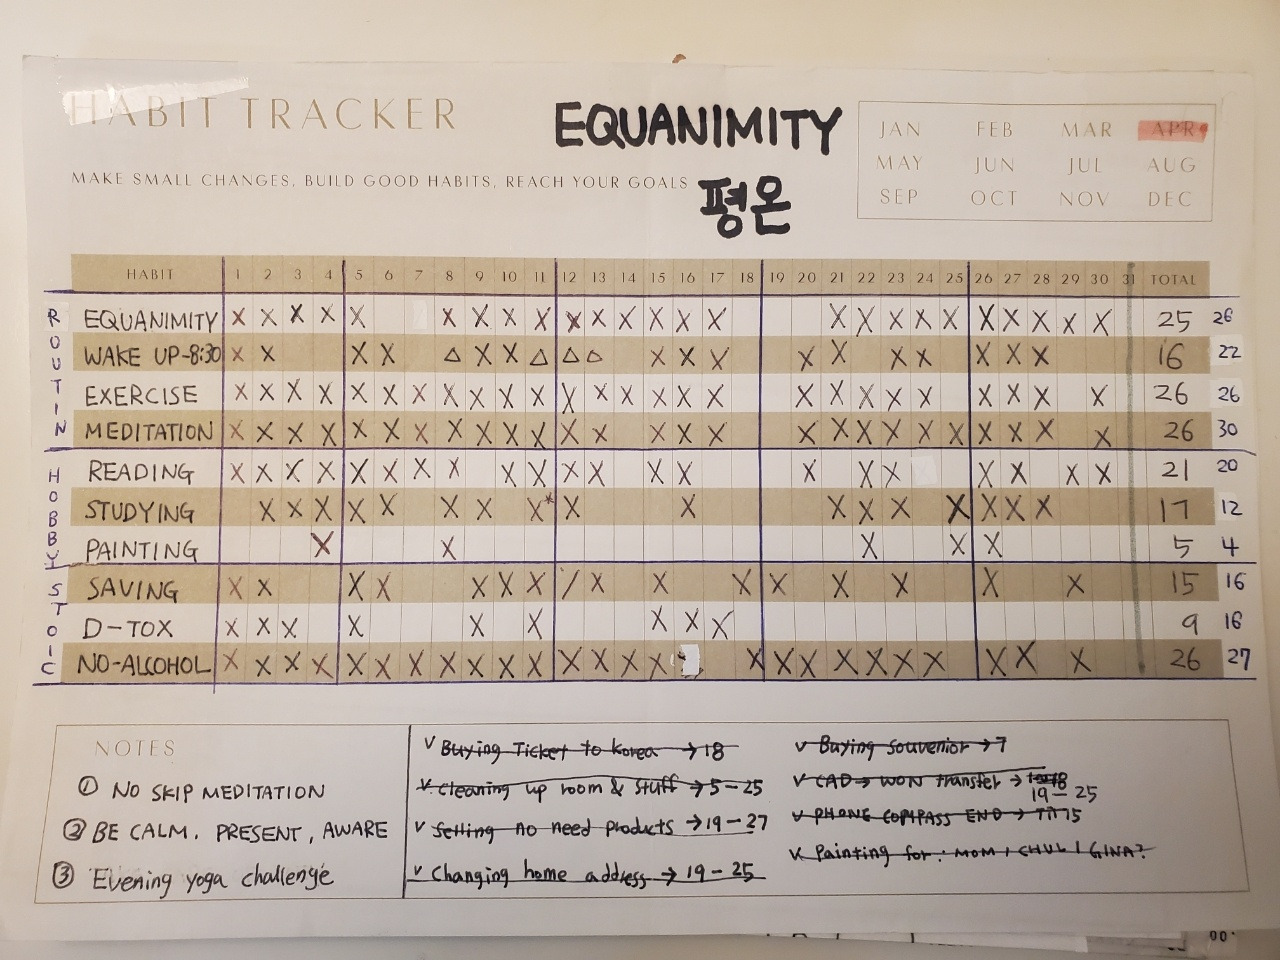 HABIT TRACKER
EQUANIMITY
평온
MAKE SMALL CHANGES, BUILD GOOD HABITS, REACH YOUR GOALS
JAN FEB MAR APR
MAY JUN JUL AUG
SEP OCT NOV DEC
HABIT 1 2 3 4 5 6 7 8 9 10 11 12 13 14 15 16 17 18 19 20 21 22 23 24 25 26 27 28 29 30 31 TOTAL
ROUTIN
EQUANIMITY X X X X X X X X X X X X X X X X X X X X X X X X X X 25 26
WAKE UP-8:30 X X X X △ X X △ △ △ X X X X X X X X X X 16 22
EXERCISE X X X X X X X X X X X X X X X X X X X X X X X X X X X 26 26
MEDITATION X X X X X X X X X X X X X X X X X X X X X X X X X X 26 30
HOBBY
READING X X X X X X X X X X X X X X X X X X X X X 21 20
STUDYING X X X X X X X X* X X X X X X X X X 17 12
PAINTING X X X X X 5 4
STOIC
SAVING X X X X X X X / X X X X X X X X 15 16
D-TOX X X X X X X X X X 9 16
NO-ALCOHOL X X X X X X X X X X X X X X X X X X X X X X X X X X 26 27
NOTES
① NO SKIP MEDITATION
② BE CALM. PRESENT, AWARE
③ Evening yoga challenge
v Buying Ticket to Korea → 18
v Cleaning up room & stuff → 5-25
v Selling no need products → 19-27
v Changing home address → 19-25
v Buying souvenior → 7
v CAD → WON transfer →
19-25
v PHONE COMPASS END →
v Painting for: MOM / CHUL / GINA?
00